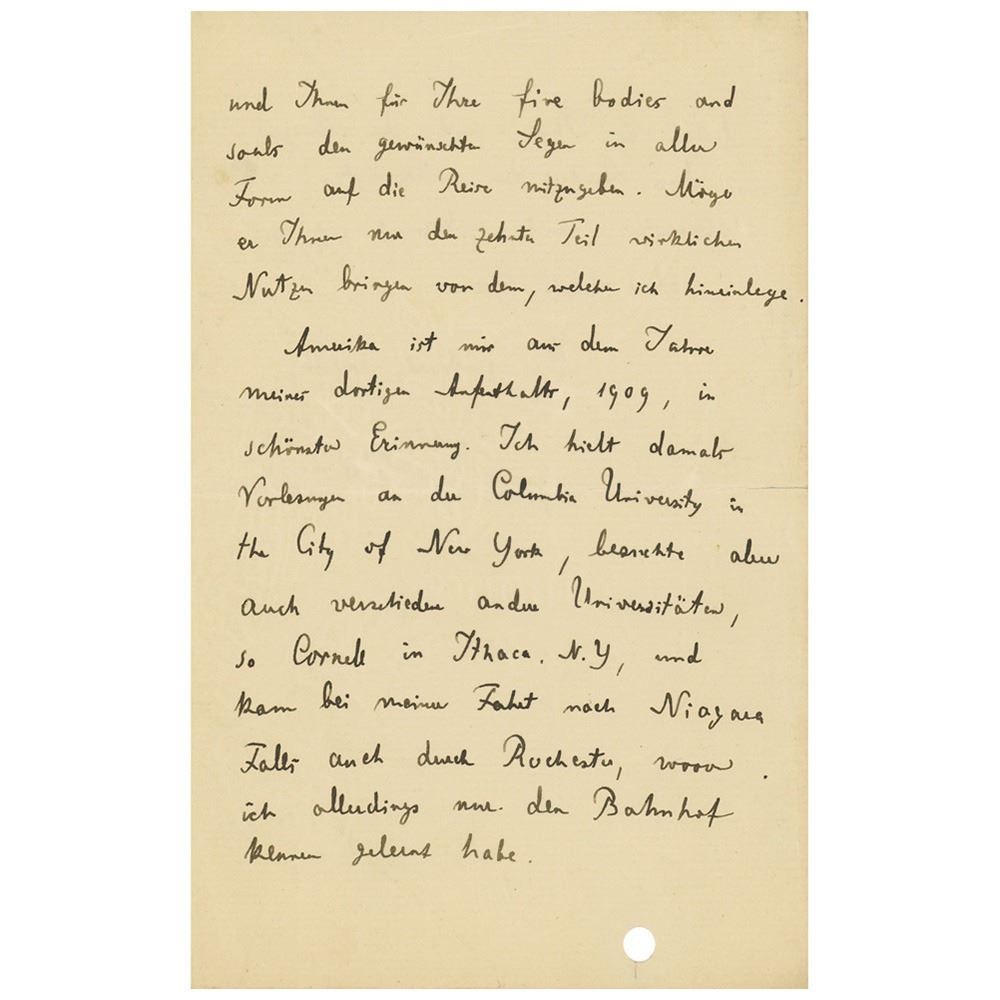 und Ihnen für Ihre five bodies and
souls den gewünschten Segen in aller
Form auf die Reise mitzugeben. Möge
er Ihnen nur den zehnten Teil wirklichen
Nutzen bringen von dem, welchen ich hineinlege.
Amerika ist mir aus dem Jahre
meines dortigen Aufenthalts, 1909, in
schönster Erinnerung. Ich hielt damals
Vorlesungen an der Columbia University in
the City of New York, besuchte aber
auch verschiedene andere Universitäten,
so Cornell in Ithaca. N.Y, und
kam bei meiner Fahrt nach Niagara
Falls auch durch Rochester, wovon
ich allerdings nur den Bahnhof
kennen gelernt habe.